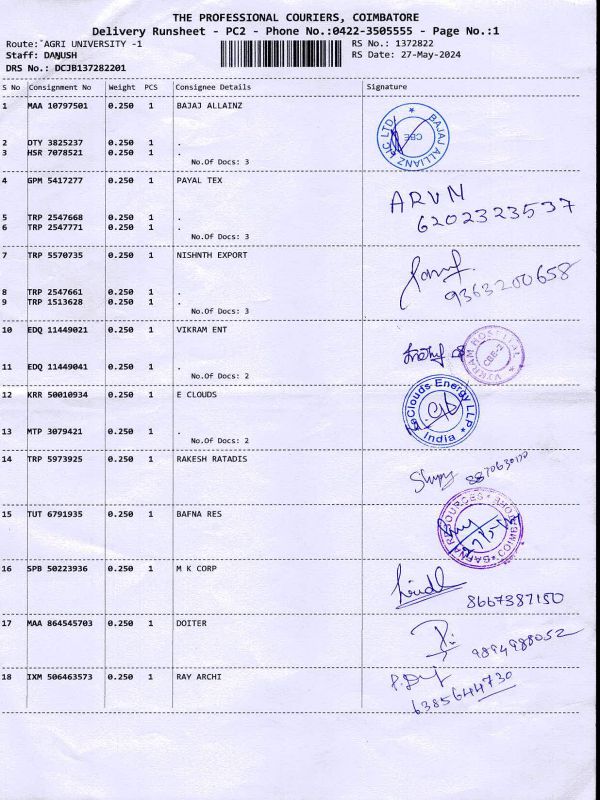 THE PROFESSIONAL COURIERS, COIMBATORE
Delivery Runsheet - PC2 - Phone No.:0422-3505555 - Page No.:1
Route: AGRI UNIVERSITY -1 RS No.: 1372822
Staff: DANUSH RS Date: 27-May-2024
DRS No.: DCJB137282201
S No Consignment No Weight PCS Consignee Details Signature
1 MAA 10797501 0.250 1 BAJAJ ALLAINZ
BAJAJ ALLIANZ LIC LTD. * CBE
2 DTY 3825237 0.250 1 .
3 HSR 7078521 0.250 1 .
No.Of Docs: 3
4 GPM 5417277 0.250 1 PAYAL TEX
ARUN
6202323537
5 TRP 2547668 0.250 1 .
6 TRP 2547771 0.250 1 .
No.Of Docs: 3
7 TRP 5570735 0.250 1 NISHNTH EXPORT
9363200658
8 TRP 2547661 0.250 1 .
9 TRP 1513628 0.250 1 .
No.Of Docs: 3
10 EDQ 11449021 0.250 1 VIKRAM ENT
VIKRAM HOSPITAL *
11 EDQ 11449041 0.250 1 .
No.Of Docs: 2
12 KRR 50010934 0.250 1 E CLOUDS
Clouds Energy LLP * India *
13 MTP 3079421 0.250 1 .
No.Of Docs: 2
14 TRP 5973925 0.250 1 RAKESH RATADIS
15 TUT 6791935 0.250 1 BAFNA RES
BAFNA RESOURCES *
16 SPB 50223936 0.250 1 M K CORP
8667387150
17 MAA 864545703 0.250 1 DOITER
9894988052
18 IXM 506463573 0.250 1 RAY ARCHI
6385644730